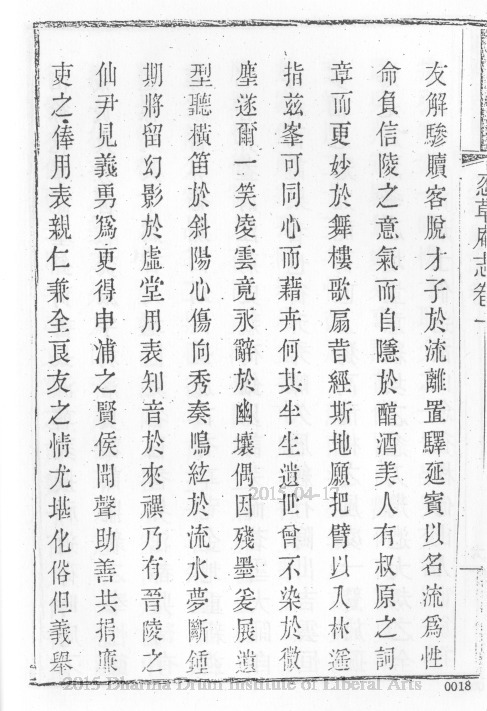 忍草庵志卷一
友解驂贖客脫才子於流離置驛延賓以名流爲性
命負信陵之意氣而自隱於醕酒美人有叔原之詞
章而更妙於舞樓歌扇昔經斯地願把臂以入林遥
指兹峯可同心而藉卉何其半生遺世曾不染於微
塵遂爾一笑凌雲竟永辭於幽壤偶因殘墨爰展遺
型聽橫笛於斜陽心傷向秀奏鳴絃於流水夢斷鍾
期將留幻影於虛堂用表知音於來禩乃有晉陵之
仙尹見義勇爲更得申浦之賢侯聞聲助善共捐廉
吏之俸用表親仁兼全良友之情尤堪化俗但義舉
2015-04-17
2015 Dharma Drum Institute of Liberal Arts
0018